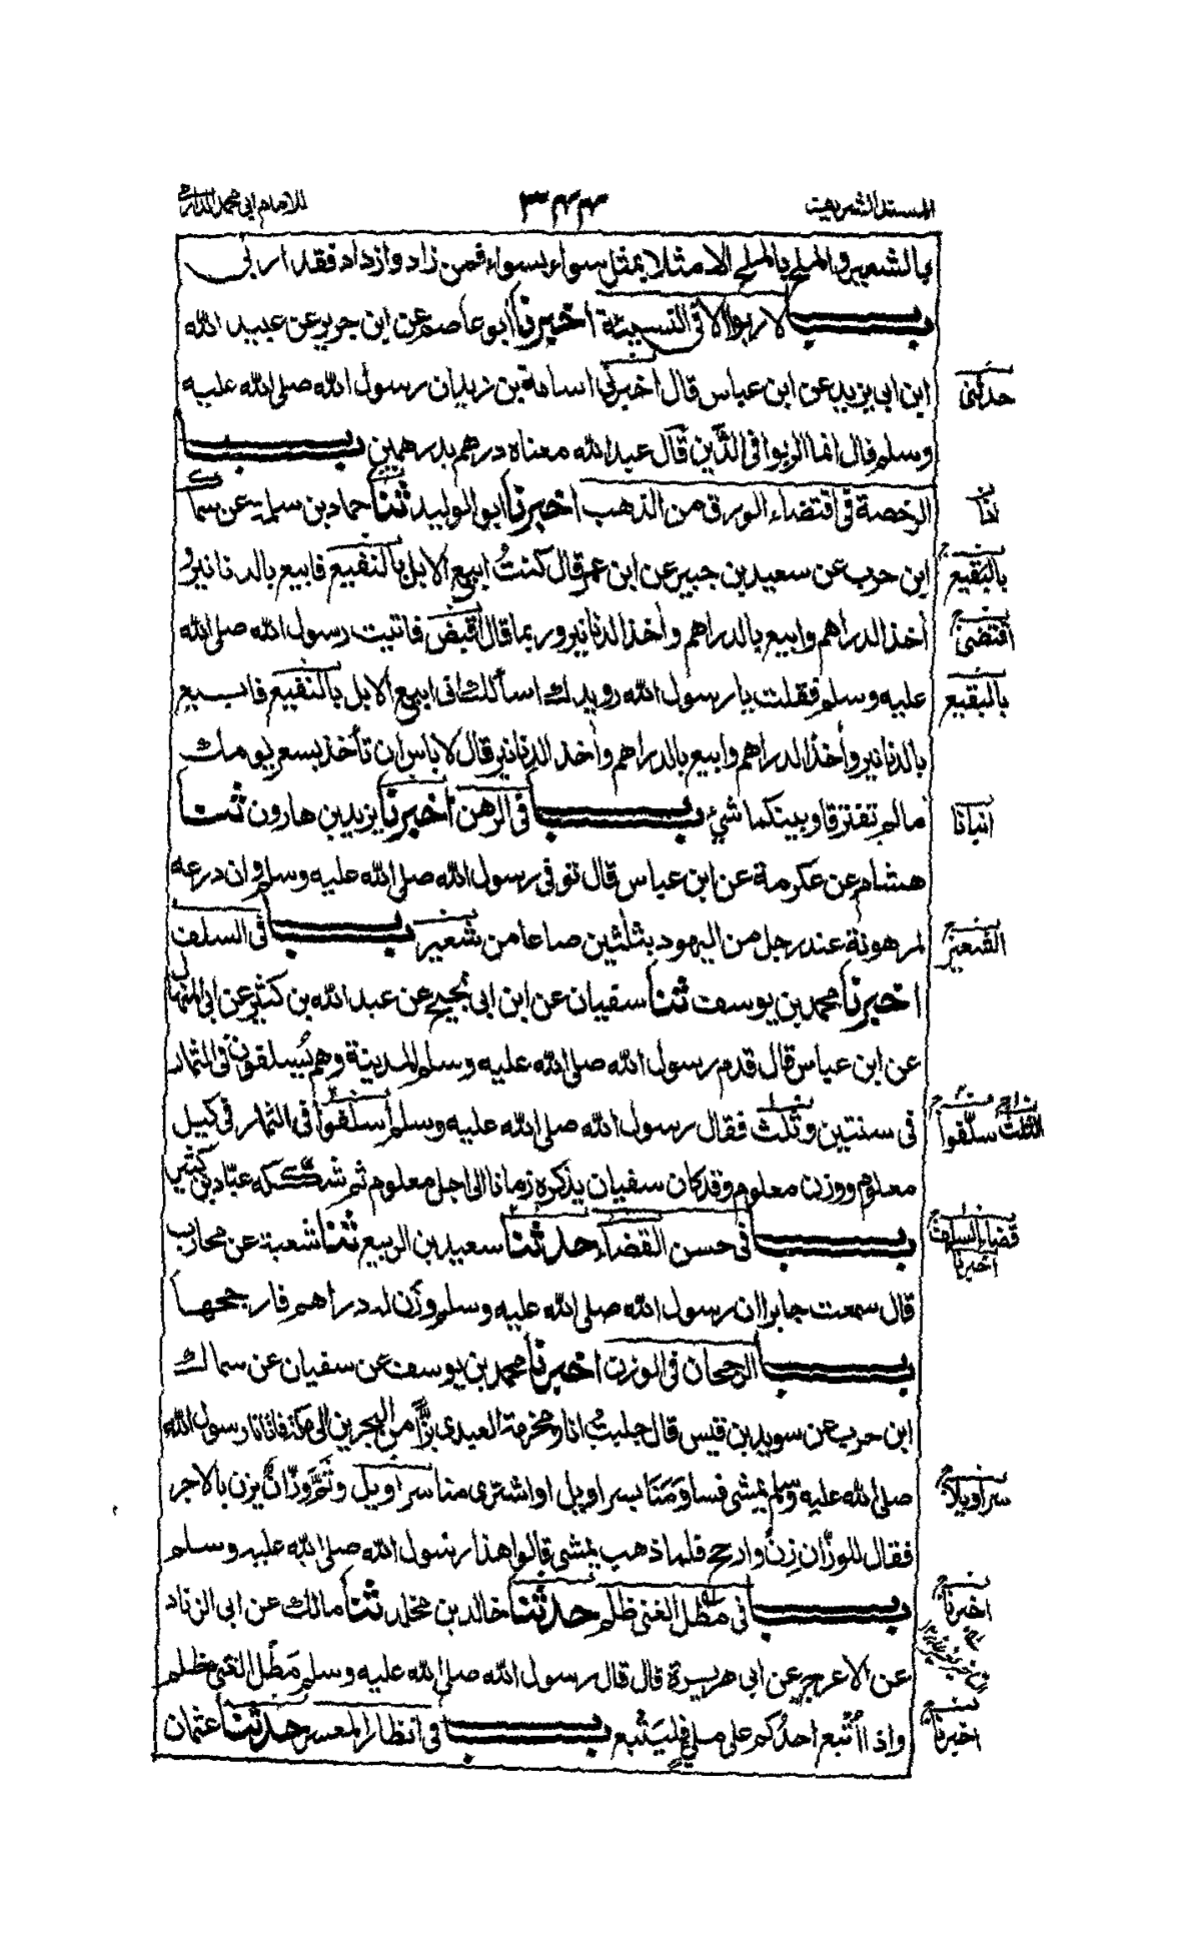 المسند الشريف
٣٤٤
للامام ابي محمد الدارمي
بالشعير والملح بالملح الا مثلا بمثل سواء بسواء فمن زاد وازداد فقد اربى
باب لا ربوا الا فى النسيئة اخبرنا ابو عاصم عن ابن جريج عن عبيد الله
ابن ابى يزيد عن ابن عباس قال اخبرنى اسامة بن زيد ان رسول الله صلى الله عليه
حدثنى
وسلم قال انما الربوا فى الدَّين قال عبد الله معناه درهم بدرهمين باب
الرخصة فى اقتضاء الورق من الذهب اخبرنا ابو الوليد ثنا حماد بن سلمة عن سماك
انا
ابن حرب عن سعيد بن جبير عن ابن عمر قال كنتُ ابيع الابل بالنقيع فابيع بالدنانير و
بالبقيع
أخذ الدراهم وابيع بالدراهم وأخذ الدنانير وربما قال اقبض فاتيت رسول الله صلى الله
اقتضى
عليه وسلم فقلت يا رسول الله رويدك اسألك انى ابيع الابل بالنقيع فابيع
بالبقيع
بالدنانير وأخذ الدراهم وابيع بالدراهم وأخذ الدنانير قال لا باس ان تأخذ بسعر يومك
ما لم تفترقا وبينكما شيء باب فى الرهن اخبرنا يزيد بن هارون ثنا
انبانا
هشام عن عكرمة عن ابن عباس قال توفى رسول الله صلى الله عليه وسلم وان درعه
لمرهونة عند رجل من اليهود بثلثين صاعا من شعير باب فى السلف
الشعير
اخبرنا محمد بن يوسف ثنا سفيان عن ابن ابى نجيح عن عبد الله بن كثير عن ابى المنهال
عن ابن عباس قال قدم رسول الله صلى الله عليه وسلم المدينة وهم يُسلفون فى الثمار
فى سنتين وثلث فقال رسول الله صلى الله عليه وسلم أسلفوا فى الثمار فى كيل
الثلث سلّفوا
معلوم ووزن معلوم وقد كان سفيان يذكره زمانا الى اجل معلوم ثم شككه عبّاد بن كثير
باب فى حسن القضاء حدثنا سعيد بن الربيع ثنا شعبة عن محارب
قضاء السلف
اخبرنا
قال سمعت جابرا ان رسول الله صلى الله عليه وسلم وزن له دراهم فارجحها
باب الرجحان فى الوزن اخبرنا محمد بن يوسف عن سفيان عن سماك
ابن حرب عن سويد بن قيس قال جلبتُ انا ومخرمة العبدى بزًّا من البحرين الى مكة فاتانا رسول الله
صلى الله عليه وسلم يمشى فساوَمَنَا بسراويل او اشترى منا سراويل وثَمَّ وَزَّانٌ يزن بالاجر
سراويلا
فقال للوزّان زِنْ وارجح فلما ذهب يمشى قالوا هذا رسول الله صلى الله عليه وسلم
باب فى مَطْل الغنى ظلم حدثنا خالد بن مخلد ثنا مالك عن ابى الزناد
اخبرنا
عن الاعرج عن ابى هريرة قال قال رسول الله صلى الله عليه وسلم مَطْل الغنى ظلم
واذا أُتْبع احدُكم على ملى فليَتْبع باب فى انظار المعسر حدثنا عثمان
اخبرنا